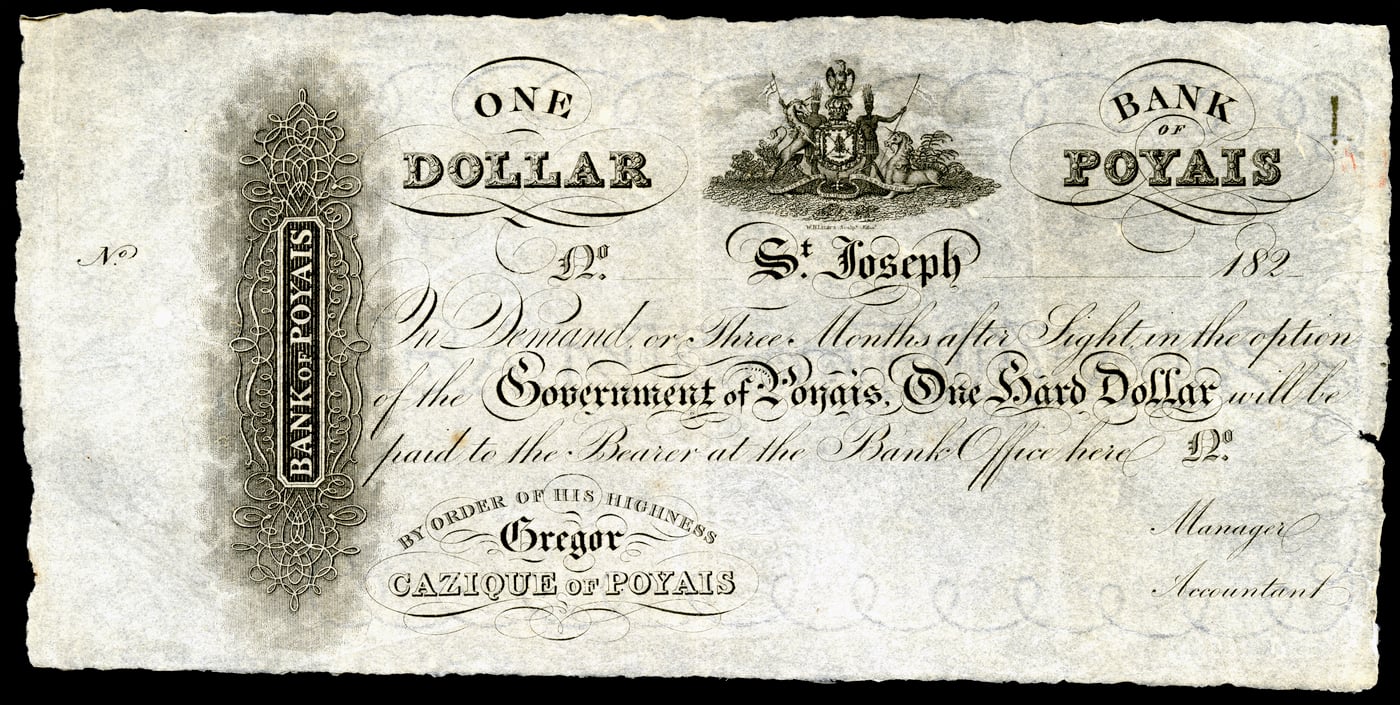 ONE
DOLLAR
BANK
OF
POYAIS
W.H.Lizars Sculpt. Edinr.
No.
BANK OF POYAIS
No.
St. Joseph
182
On Demand, or Three Months after Sight, in the option
of the Government of Poyais, One Hard Dollar will be
paid to the Bearer at the Bank Office here
No.
BY ORDER OF HIS HIGHNESS
Gregor
CAZIQUE OF POYAIS
Manager
Accountant